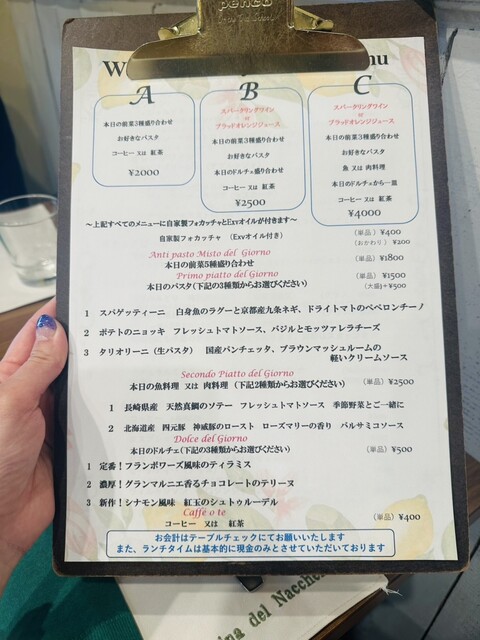 penco
nu
A
B
C
本日の前菜3種盛り合わせ
お好きなパスタ
コーヒー 又は 紅茶
¥2000
スパークリングワイン
or
ブラッドオレンジジュース
本日の前菜3種盛り合わせ
お好きなパスタ
本日のドルチェ盛り合わせ
コーヒー 又は 紅茶
¥2500
スパークリングワイン
or
ブラッドオレンジジュース
本日の前菜3種盛り合わせ
お好きなパスタ
魚 又は 肉料理
本日のドルチェから一皿
コーヒー 又は 紅茶
¥4000
〜上記すべてのメニューに自家製フォカッチャとExvオイルが付きます〜
自家製フォカッチャ (Exvオイル付き) (単品) ¥400
(おかわり) ¥200
Anti pasto Misto del Giorno
本日の前菜5種盛り合わせ (単品) ¥1800
Primo piatto del Giorno
本日のパスタ(下記の3種類からお選びください) (単品) ¥1500
(大盛)+¥500
1 スパゲッティーニ 白身魚のラグーと京都産九条ネギ、ドライトマトのペペロンチーノ
2 ポテトのニョッキ フレッシュトマトソース、バジルとモッツァレラチーズ
3 タリオリーニ(生パスタ) 国産パンチェッタ、ブラウンマッシュルームの
軽いクリームソース
Secondo Piatto del Giorno
本日の魚料理 又は 肉料理 (下記2種類からお選びください) (単品) ¥2500
1 長崎県産 天然真鯛のソテー フレッシュトマトソース 季節野菜とご一緒に
2 北海道産 四元豚 神威豚のロースト ローズマリーの香り バルサミコソース
Dolce del Giorno
本日のドルチェ(下記の3種類からお選びください) (単品) ¥500
1 定番!フランボワーズ風味のティラミス
2 濃厚!グランマルニエ香るチョコレートのテリーヌ
3 新作!シナモン風味 紅玉のシュトゥルーデル
Caffè o te
コーヒー 又は 紅茶 (単品) ¥400
お会計はテーブルチェックにてお願いいたします
また、ランチタイムは基本的に現金のみとさせていただいております
ina del Nacche